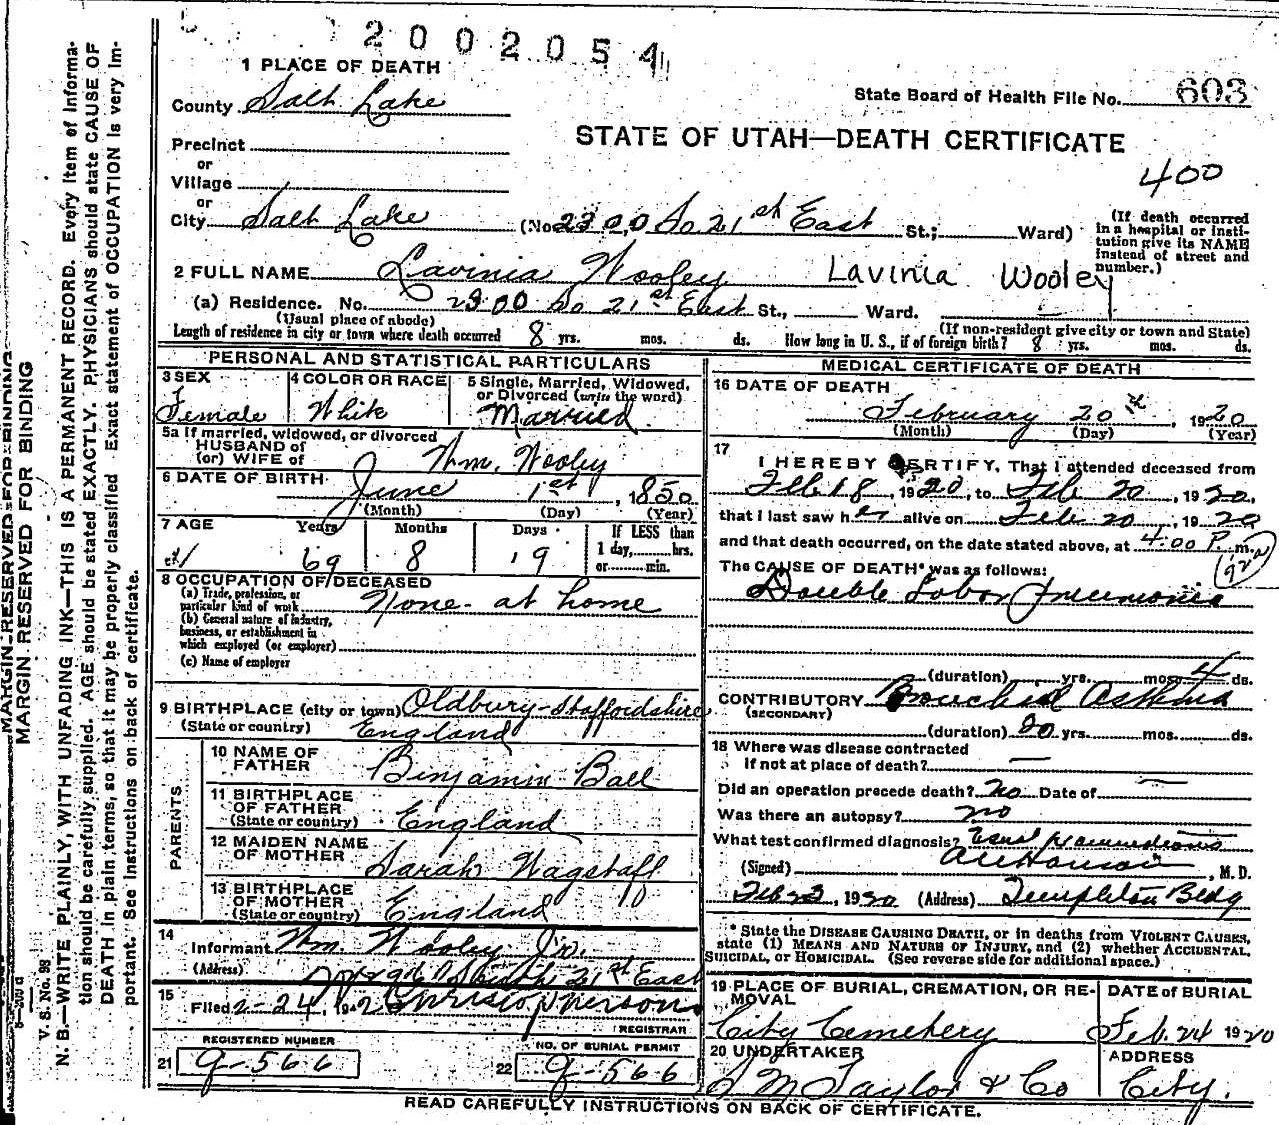 2002054
1 PLACE OF DEATH
County Salt Lake
State Board of Health File No. 603
STATE OF UTAH—DEATH CERTIFICATE
400
Precinct
or
Village
or
City Salt Lake (No. 2300 So 21st East St.; Ward)
(If death occurred in a hospital or institution give its NAME instead of street and number.)
2 FULL NAME Lavinia Wooley Lavinia Wooley
(a) Residence. No. 2300 So 21st East St., Ward.
(Usual place of abode) (If non-resident give city or town and State)
Length of residence in city or town where death occurred 8 yrs. mos. ds. How long in U. S., if of foreign birth? 8 yrs. mos. ds.
PERSONAL AND STATISTICAL PARTICULARS
3 SEX Female
4 COLOR OR RACE White
5 Single, Married, Widowed, or Divorced (write the word) Married.
5a If married, widowed, or divorced
HUSBAND of
(or) WIFE of Wm. Wooley
6 DATE OF BIRTH June 1st, 1850
(Month) (Day) (Year)
7 AGE Years 69 Months 8 Days 19 If LESS than 1 day, hrs. or min.
8 OCCUPATION OF DECEASED
(a) Trade, profession, or particular kind of work None - at home
(b) General nature of industry, business, or establishment in which employed (or employer)
(c) Name of employer
9 BIRTHPLACE (city or town) Oldbury-Staffordshire
(State or country) England
PARENTS
10 NAME OF FATHER Binjamin Ball
11 BIRTHPLACE OF FATHER (State or country) England
12 MAIDEN NAME OF MOTHER Sarah Wagstaff
13 BIRTHPLACE OF MOTHER (State or country) England
14 Informant Wm. Wooley Jr.
(Address) 21st East
15 Filed 2-24, 192
REGISTRAR
REGISTERED NUMBER
21 9-566
NO. OF BURIAL PERMIT
22 9-566
MEDICAL CERTIFICATE OF DEATH
16 DATE OF DEATH
February 20th, 1920
(Month) (Day) (Year)
17 I HEREBY CERTIFY, That I attended deceased from
Feb 18, 1920, to Feb 20, 1920,
that I last saw her alive on Feb 20, 1920
and that death occurred, on the date stated above, at 4:00 P. m.
The CAUSE OF DEATH* was as follows:
Double Lobar Pneumonia
(duration) yrs. mos. 4 ds.
CONTRIBUTORY Bronchial Asthma
(SECONDARY)
(duration) 20 yrs. mos. ds.
18 Where was disease contracted
if not at place of death? —
Did an operation precede death? no Date of —
Was there an autopsy? no
What test confirmed diagnosis? Usual
(Signed) , M. D.
Feb 23, 1920 (Address) Templeton Bldg
* State the DISEASE CAUSING DEATH, or in deaths from VIOLENT CAUSES, state (1) MEANS AND NATURE OF INJURY, and (2) whether ACCIDENTAL, SUICIDAL, or HOMICIDAL. (See reverse side for additional space.)
19 PLACE OF BURIAL, CREMATION, OR REMOVAL
City Cemetery
DATE of BURIAL
Feb. 24 1920
20 UNDERTAKER
S M Taylor & Co
ADDRESS
City.
READ CAREFULLY INSTRUCTIONS ON BACK OF CERTIFICATE.
MARGIN RESERVED FOR BINDING
MARGIN RESERVED FOR BINDING
V. S. No. 98
N. B.—WRITE PLAINLY, WITH UNFADING INK—THIS IS A PERMANENT RECORD. Every item of informa-
tion should be carefully supplied. AGE should be stated EXACTLY. PHYSICIANS should state CAUSE OF
DEATH in plain terms, so that it may be properly classified. Exact statement of OCCUPATION is very im-
portant. See Instructions on back of certificate.